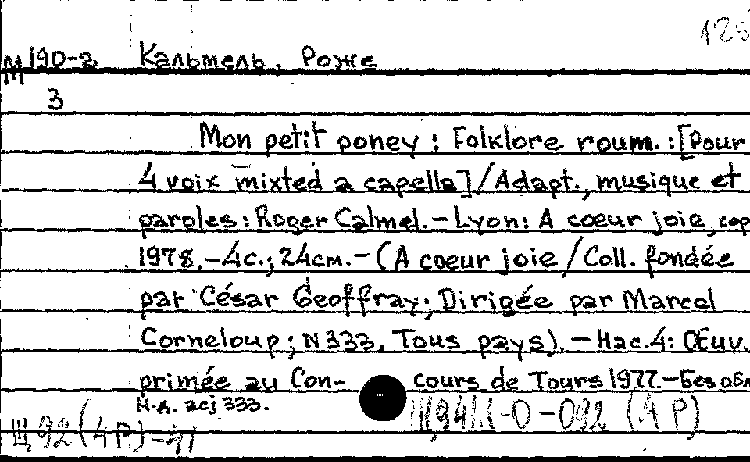 125
М190-2 Кальмель, Роже
3
Mon petit poney : Folklore roum. : [Pour
4 voix mixted a capella] / Adapt., musique et
paroles : Roger Calmel. – Lyon : A coeur joie, cop
1978. – 4с.; 24см. – (A coeur joie / Coll. fondée
par César Geoffray; Dirigée par Marcel
Corneloup; N 333, Tous pays). – На с.4: Œuv.
primée au Con- cours de Tours 1977. – Без обл
Н.д. acj 333.
Щ941.(-0-092 (4Р)
Щ92(4Р)-41